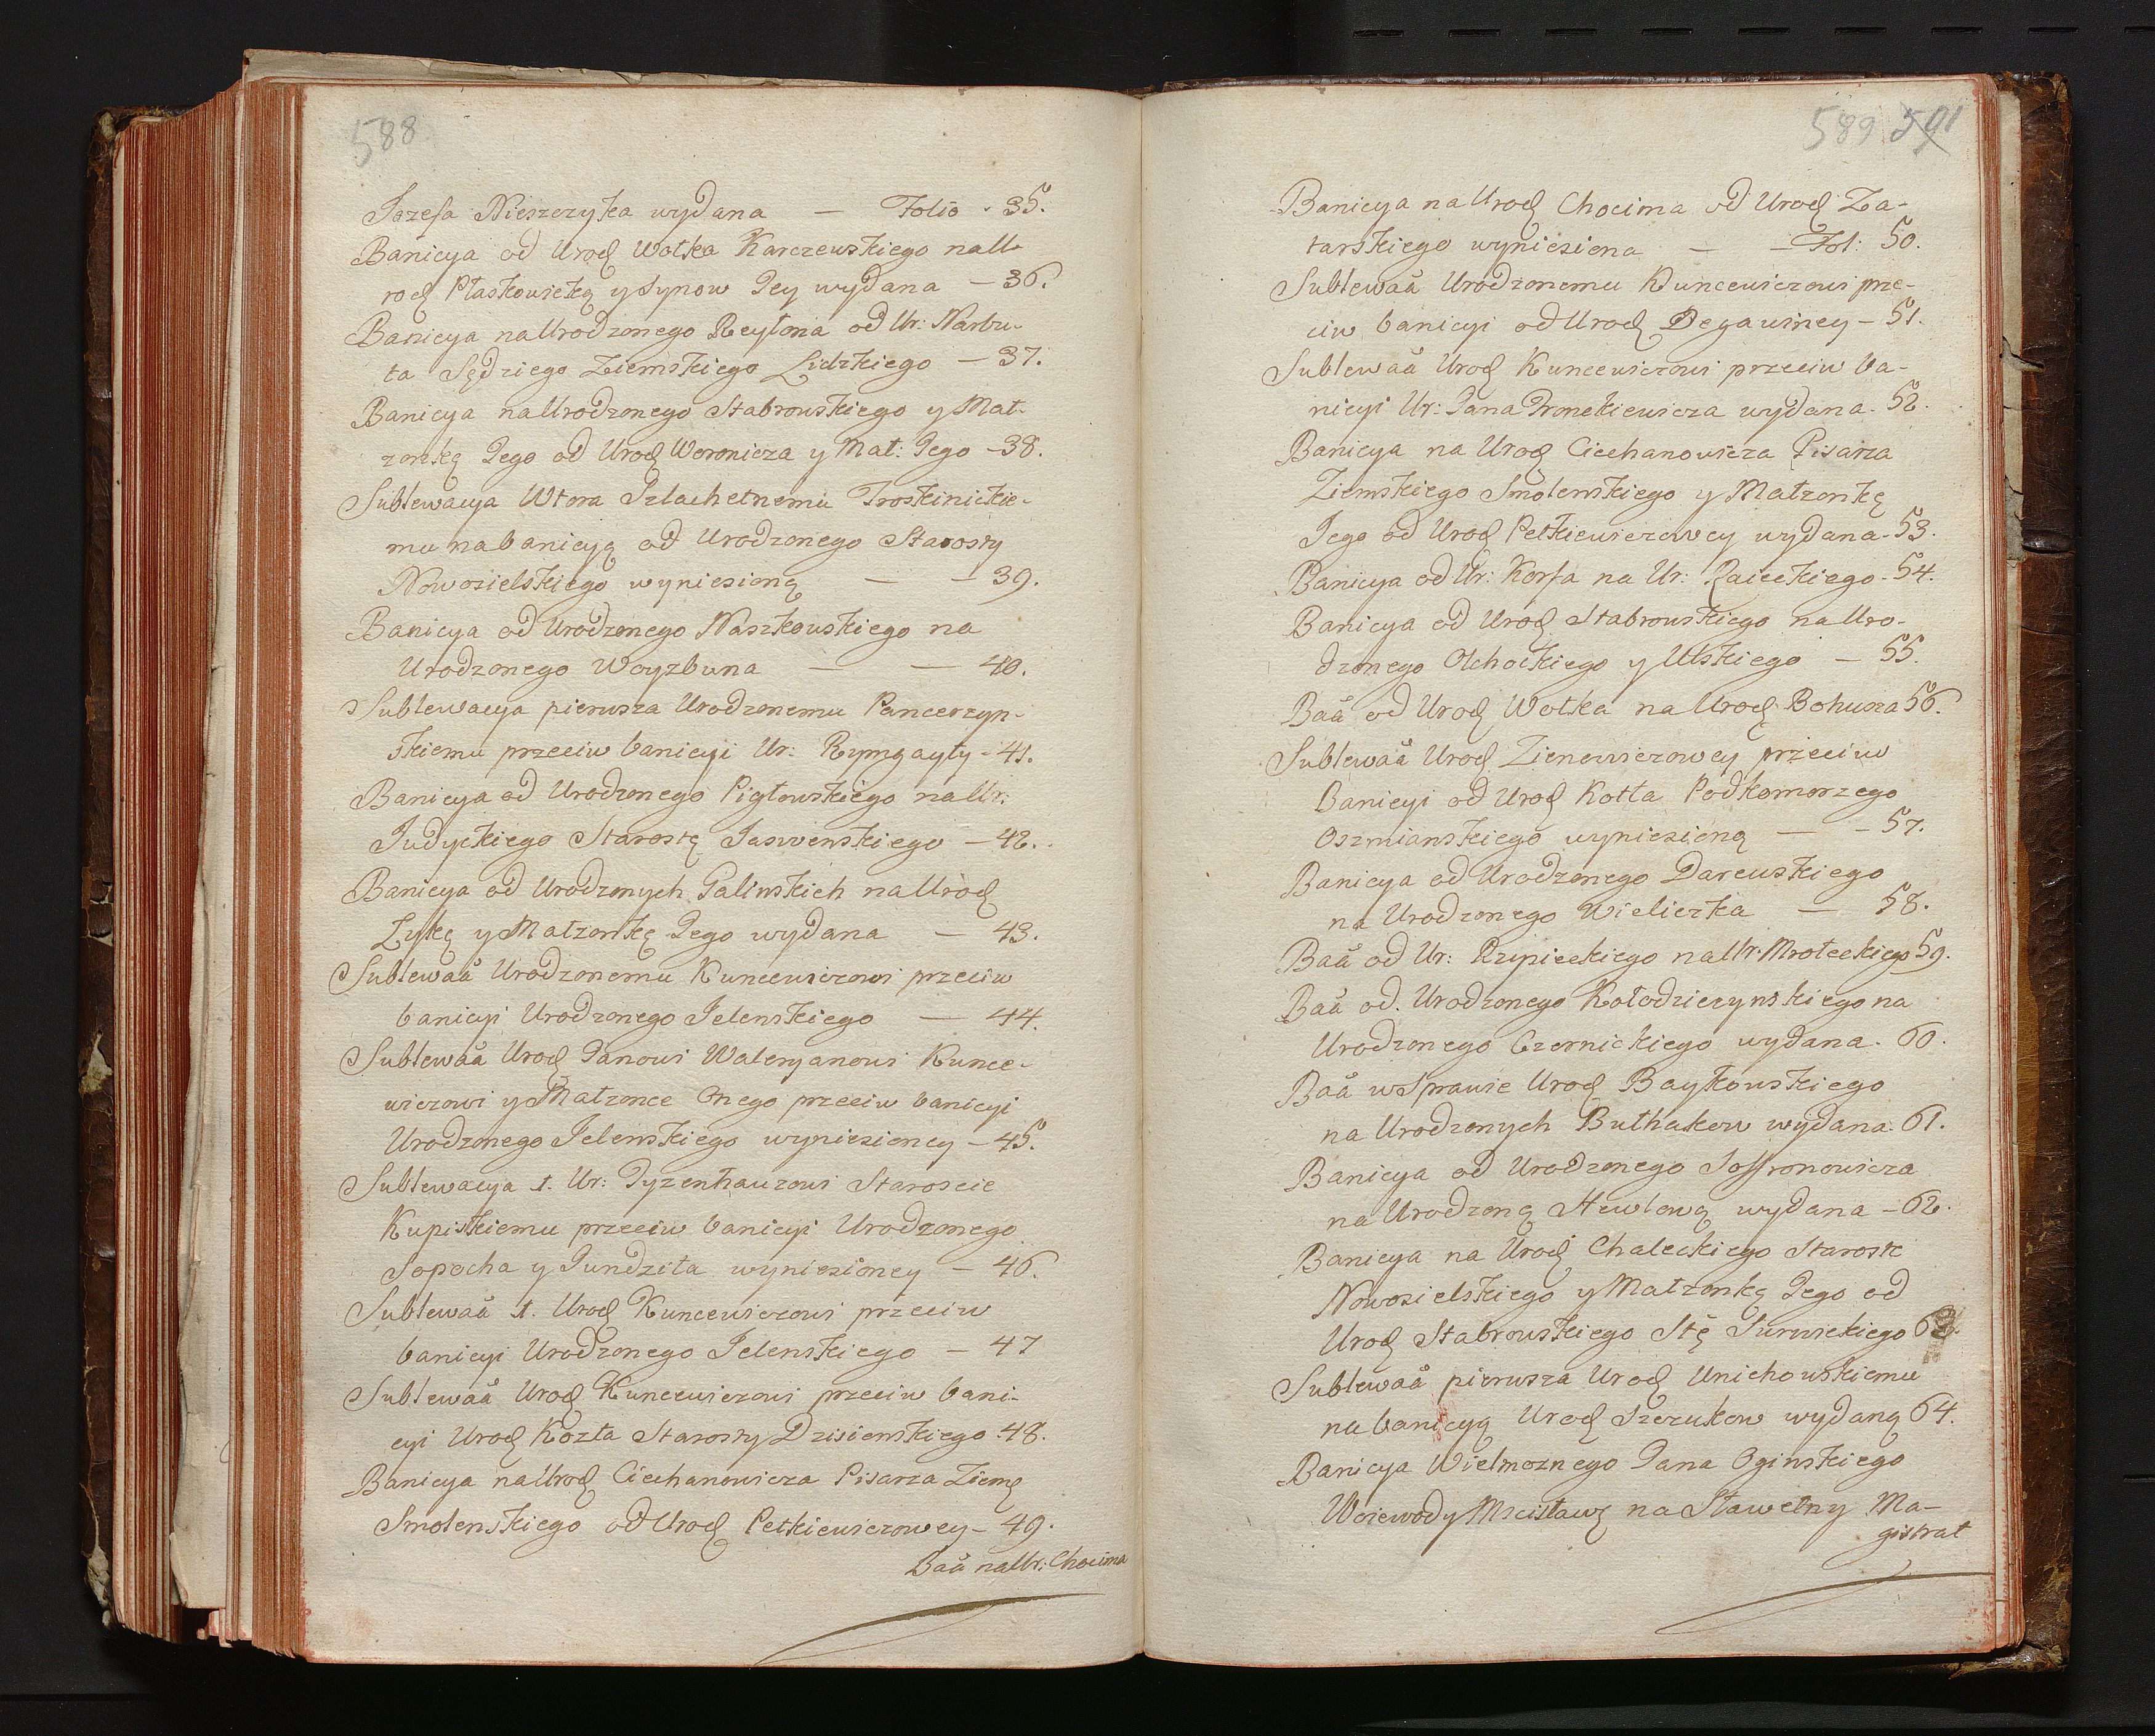 588
Iozefa Nieszczyka wydana — Folio . 35.
Banicya od Urodz Wołka Karczewskiego na U
rodz Płaskowicką y Synow Jey wydana — 36.
Banicya na Urodzonego Reytona od Ur: Narbu-
ta Sędziego Ziemskiego Lidzkiego — 37.
Banicya na Urodzonego Stabrowskiego y Mał-
zonkę Jego od Urodz Woronicza y Mał: Jego — 38.
Sublewacya Wtora Szlachetnemu Troskinickie-
mu na banicyą od Urodzonego Starosty
Nowosielskiego wyniesioną — — 39.
Banicya od Urodzonego Naszkowskiego na
Urodzonego Woyzbuna — — 40.
Sublewacya pierwsza Urodzonemu Pancerzyn-
skiemu przeciw banicyi Ur: Rymgayły - 41.
Banicya od Urodzonego Pigłowskiego na Ur:
Judyckiego Starostę Jaswonskiego — 42.
Banicya od Urodzonych Galinskich na Urodz
Zykę y Małzonkę Jego wydana — 43.
Sublewaa Urodzonemu Kuncewiczowi przeciw
banicyi Urodzonego Jelenskiego — 44.
Sublewaa Urodz Janowi Waleryanowi Kunce-
wiczowi y Małzonce Onego przeciw banicyi
Urodzonego Jelenskiego wyniesioney — 45.
Sublewacya 1. Ur: Tyzenhauzowi Staroscie
Kupiskiemu przeciw banicyi Urodzonego
Sopocha y Jundziła wyniesioney — 46.
Sublewaa 1. Urodz Kuncewiczowi przeciw
banicyi Urodzonego Jelenskiego — 47
Sublewaa Urodz Kuncewiczowi przeciw bani-
cyi Urodz Kozła Starosty Dzisienskiego . 48.
Banicya na Urodz Ciechanowicza Pisarza Ziems
Smolenskiego od Urodz Petkiewiczowey — 49.
Baa na Ur: Chocima
589 591
Banicya na Urodz Chocima od Urodz Za-
tarskiego wyniesiona — — Fol: 50.
Sublewaa Urodzonemu Kuncewiczowi prze-
ciw banicyi od Urodz Degawiney — 51.
Sublewaa Urodz Kuncewiczowi przeciw ba-
nicyi Ur: Jana Pronckiewicza wydana . 52.
Banicya na Urodz Ciechanowicza Pisarza
Ziemskiego Smolenskiego y Małzonkę
Jego od Urodz Petkiewiczowey wydana - 53.
Banicya od Ur: Korfa na Ur: Raieckiego - 54.
Banicya od Urodz Stabrowskiego na Uro-
dzonego Olchockiego y Ulskiego — 55.
Baa od Urodz Wołka na Urodz Bohusza 56.
Sublewaa Urodz Zienowiczowey przeciw
Banicyi od Urodz Kotła Podkomorzego
Oszmianskiego wyniesioną — — 57.
Banicya od Urodzonego Darewskiego
na Urodzonego Wieliczka — 58.
Baa od Ur: Rzipieckiego na Ur: Mroteckiego 59.
Baa od. Urodzonego Kołodzieczynskiego na
Urodzonego Czernickiego wydana . 60.
Baa w Sprawie Urodz Baykowskiego
na Urodzonych Buthakow wydana. 61.
Banicya od Urodzonego Joffronowicza
na Urodzoną Hewlową wydana — 62.
Banicya na Urodz Chaleckiego Starostę
Nowosielskiego y Małzonkę Jego od
Urodz Stabrowskiego Stę Surwickiego 63.
Sublewaa pierwsza Urodz Unichowskiemu
na banicyą Urodz Szczukow wydaną 64.
Banicya Wielmoznego Pana Oginskiego
Woiewody Mscisławs na Sławetny Ma-
gistrat